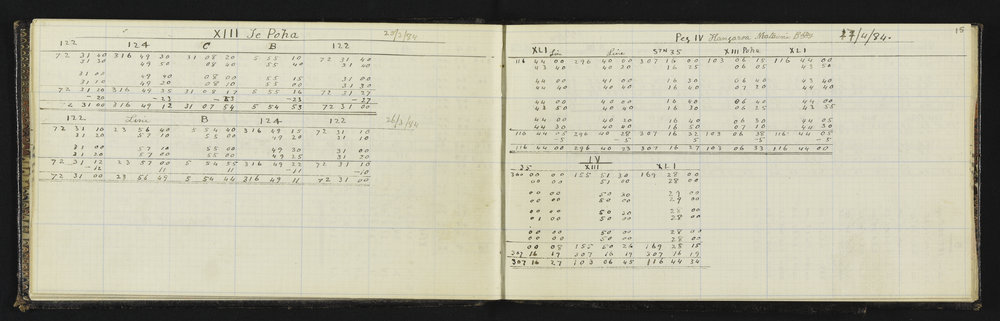 XIII Te Poha 20/2/84
122 124 C B 122
72 31 40 316 49 30 31 08 20 5 55 10 72 31 40
31 30 49 50 08 40 55 40 31 40
31 00 49 40 08 00 55 15 31 00
31 10 49 20 08 10 55 00 31 30
72 31 20 316 49 35 31 08 17 5 55 16 72 31 27
-20 -23 -23 -23 -27
72 31 00 316 49 12 31 07 54 5 54 53 72 31 00
122 Line B 124 122 26/3/84
72 31 10 23 56 40 5 54 40 316 49 15 72 31 10
31 20 57 10 55 00 49 20 31 10
31 00 57 10 55 00 49 30 31 00
31 20 57 00 55 00 49 25 31 20
72 31 12 23 57 00 5 54 55 316 49 22 72 31 10
-12 11 11 -11 -10
72 31 00 23 56 49 5 54 44 316 49 11 72 31 00
15
Peg IV Hangaroa 27/4/84.
XLI Line Line STN 35 XIII Poha XLI
116 44 00 296 40 00 307 16 00 103 06 15 116 44 00
43 40 40 20 16 25 06 05 43 50
44 00 41 00 16 30 06 40 43 40
44 40 40 40 16 40 07 20 44 40
44 00 40 00 16 40 06 40 44 00
43 50 40 40 16 30 06 25 43 55
44 00 40 20 16 40 06 30 44 05
44 30 40 40 16 50 07 10 44 30
116 44 05 296 40 28 307 16 32 103 06 38 116 44 05
-5 -5 -5 -5 -5
116 44 00 296 40 23 307 16 27 103 06 33 116 44 00
IV
35 XIII XLI
360 00 00 155 51 30 169 28 00
00 00 51 00 28 00
00 00 50 20 29 00
00 00 50 00 29 00
00 00 50 20 28 00
01 00 50 00 28 00
00 00 50 00 28 00
00 00 50 00 28 00
00 08 155 50 26 169 28 15
307 16 19 307 16 19 307 16 19
307 16 27 103 06 45 116 44 34